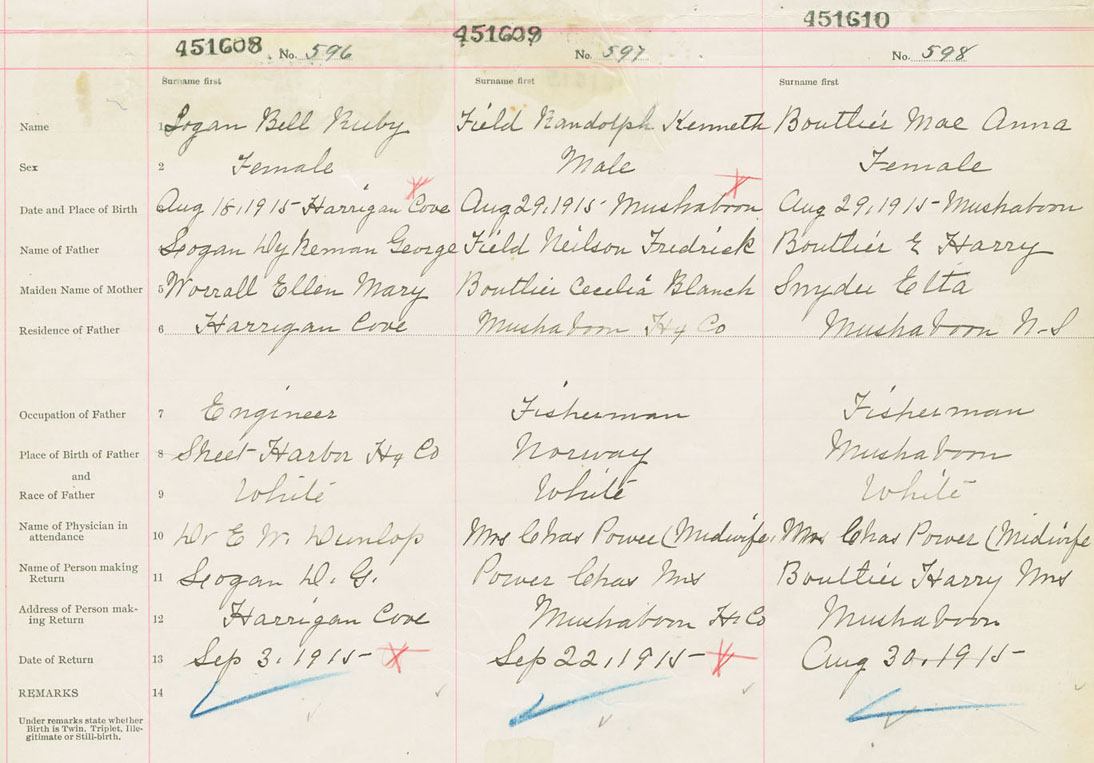 451608 451609 451610
No. 596 No. 597 No. 598
Surname first Surname first Surname first
Name 1 Logan Bell Ruby Field Randolph Kenneth Boutlier Mae Anna
Sex 2 Female Male Female
Date and Place of Birth Aug 18, 1915 - Harrigan Cove Aug 29, 1915 - Mushaboon Aug 29, 1915 - Mushaboon
Name of Father Logan Dykeman George Field Neilson Fredrick Boutlier E Harry
Maiden Name of Mother 5 Worrall Ellen Mary Boutlier Cecelia Blanch Snyder Etta
Residence of Father 6 Harrigan Cove Mushaboon Hx Co Mushaboon N-S
Occupation of Father 7 Engineer Fisherman Fisherman
Place of Birth of Father 8 Sheet Harbor Hx Co Norway Mushaboon
and
Race of Father 9 White White White
Name of Physician in
attendance 10 Dr E W. Dunlop Mrs Chas Power (Midwife. Mrs Chas Power (Midwife
Name of Person making
Return 11 Logan D. G. Power Chas Mrs Boutlier Harry Mrs
Address of Person mak-
ing Return 12 Harrigan Cove Mushaboon Hx Co Mushaboon
Date of Return 13 Sep 3, 1915 - Sep 22, 1915 - Aug 30, 1915 -
REMARKS 14
Under remarks state whether
Birth is Twin, Triplet, Ille-
gitimate or Still-birth.